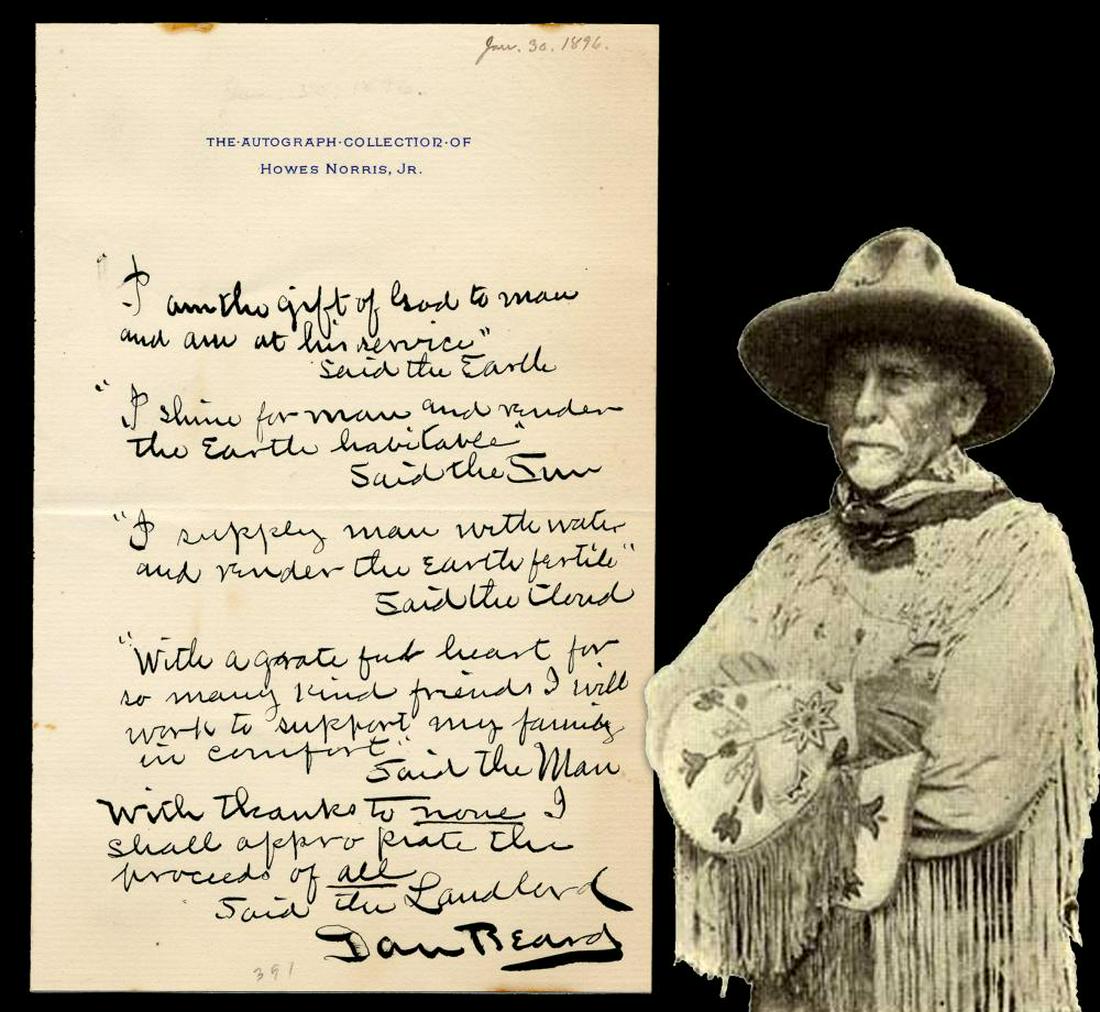 Jan. 30. 1896.
THE·AUTOGRAPH·COLLECTION·OF
HOWES NORRIS, JR.
"I am the gift of God to man
and am at his service"
Said the Earth
"I shine for man and render
the Earth habitable"
Said the Sun
"I supply man with water
and render the Earth fertile"
Said the Cloud
"With a grateful heart for
so many kind friends I will
work to support my family
in comfort"
Said the Man
With thanks to none I
shall appropriate the
proceeds of all
Said the Landlord
Dan Beard
391